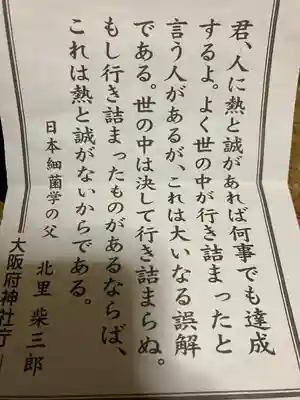 君、人に熱と誠があれば何事でも達成
するよ。よく世の中が行き詰まったと
言う人があるが、これは大いなる誤解
である。世の中は決して行き詰まらぬ。
もし行き詰まったものがあるならば、
これは熱と誠がないからである。
日本細菌学の父 北里 柴三郎
大阪府神社庁